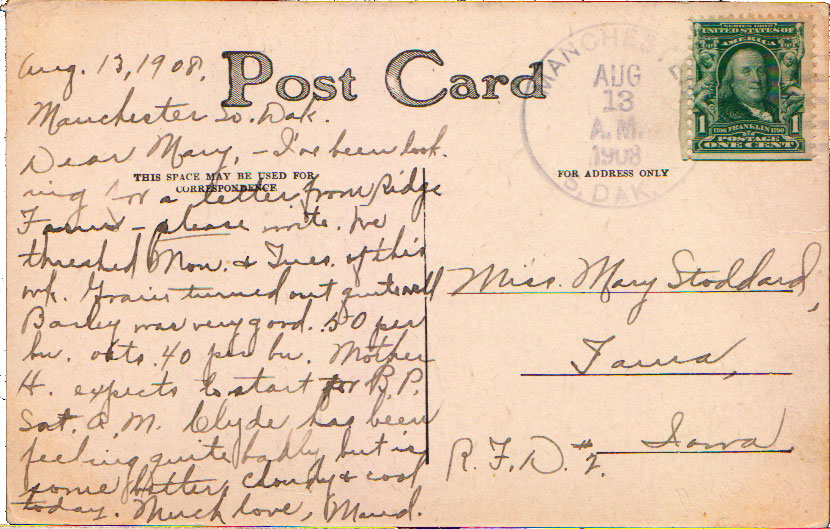 Post Card
THIS SPACE MAY BE USED FOR
CORRESPONDENCE
FOR ADDRESS ONLY
Aug. 13, 1908.
Manchester So. Dak.
Dear Mary, - I've been look-
ing for a letter from Ridge
Farm - please write. We
threshed Mon. & Tues. of this
wk. Grain turned out quite well
Barley was very good. 50 per
bu. oats 40 per bu. Mother
H. expects to start for B.P.
Sat. A.M. Clyde has been
feeling quite badly but is
some better, cloudy & cool
today. Much love, Maud.
MANCHESTE
AUG
13
A.M.
1908
S. DAK.
SERIES 1902
UNITED STATES OF
AMERICA
1706 FRANKLIN 1790
1 POSTAGE 1
ONE CENT
Miss. Mary Stoddard,
Iowa,
R.F.D. #2. Iowa.